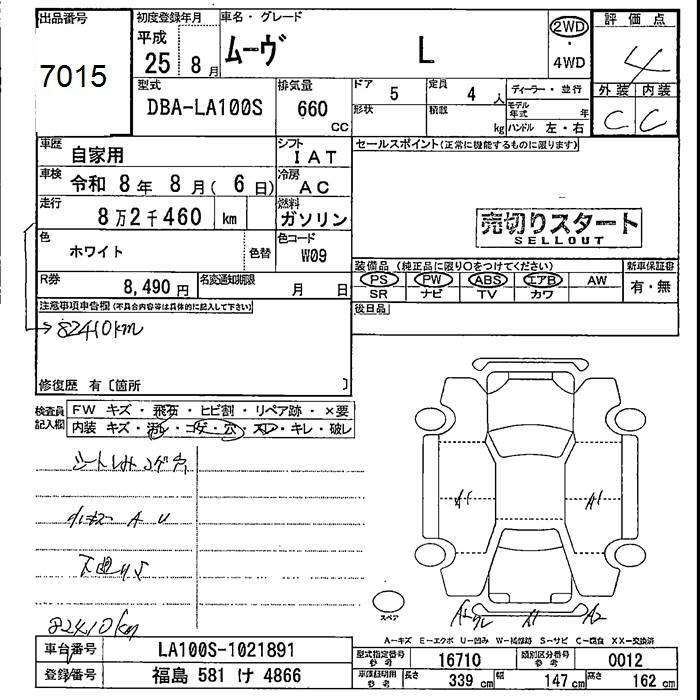 出品番号
7015
初度登録年月
平成
25 8月
車名・グレード
ムーヴ L
2WD
・
4WD
評価点
4
外装 内装
C C
型式
DBA-LA100S
排気量
660
CC
ドア 5 定員 4人
形状 積載 kg
ディーラー・並行
モデル年式 年
ハンドル 左・右
車歴 自家用
シフト IAT
セールスポイント(正常に機能するものに限ります)
車検 令和 8年 8月( 6日)
冷房 AC
走行 8万2千460 km
燃料 ガソリン
売切りスタート
SELLOUT
色 ホワイト 色替
色コード W09
R券 8,490円
名変通知期限 月 日
装備品 (純正品に限り○をつけてください)
PS PW ABS エアB AW
SR ナビ TV カワ
新車保証書
有・無
注意事項車告欄(不具合内容等は具体的に記入して下さい)
後日品
→82410km
修復歴 有〔箇所 〕
検査員記入欄
FW キズ・飛石・ヒビ割・リペア跡・×要
内装 キズ・汚レ・コゲ・穴・スレ・キレ・破レ
シートしみコゲ穴
A U
下廻りS
82410km
A1 A1
A1 A2
スペア
A-キズ E-エクボ U-凹み W-補修跡 S-サビ C-腐食 XX-交換済
車台番号 LA100S-1021891
登録番号 福島 581 け 4866
型式指定番号 参考 16710 類別区分番号 参考 0012
車庫証明用 参考 長さ 339 cm 幅 147 cm 高さ 162 cm